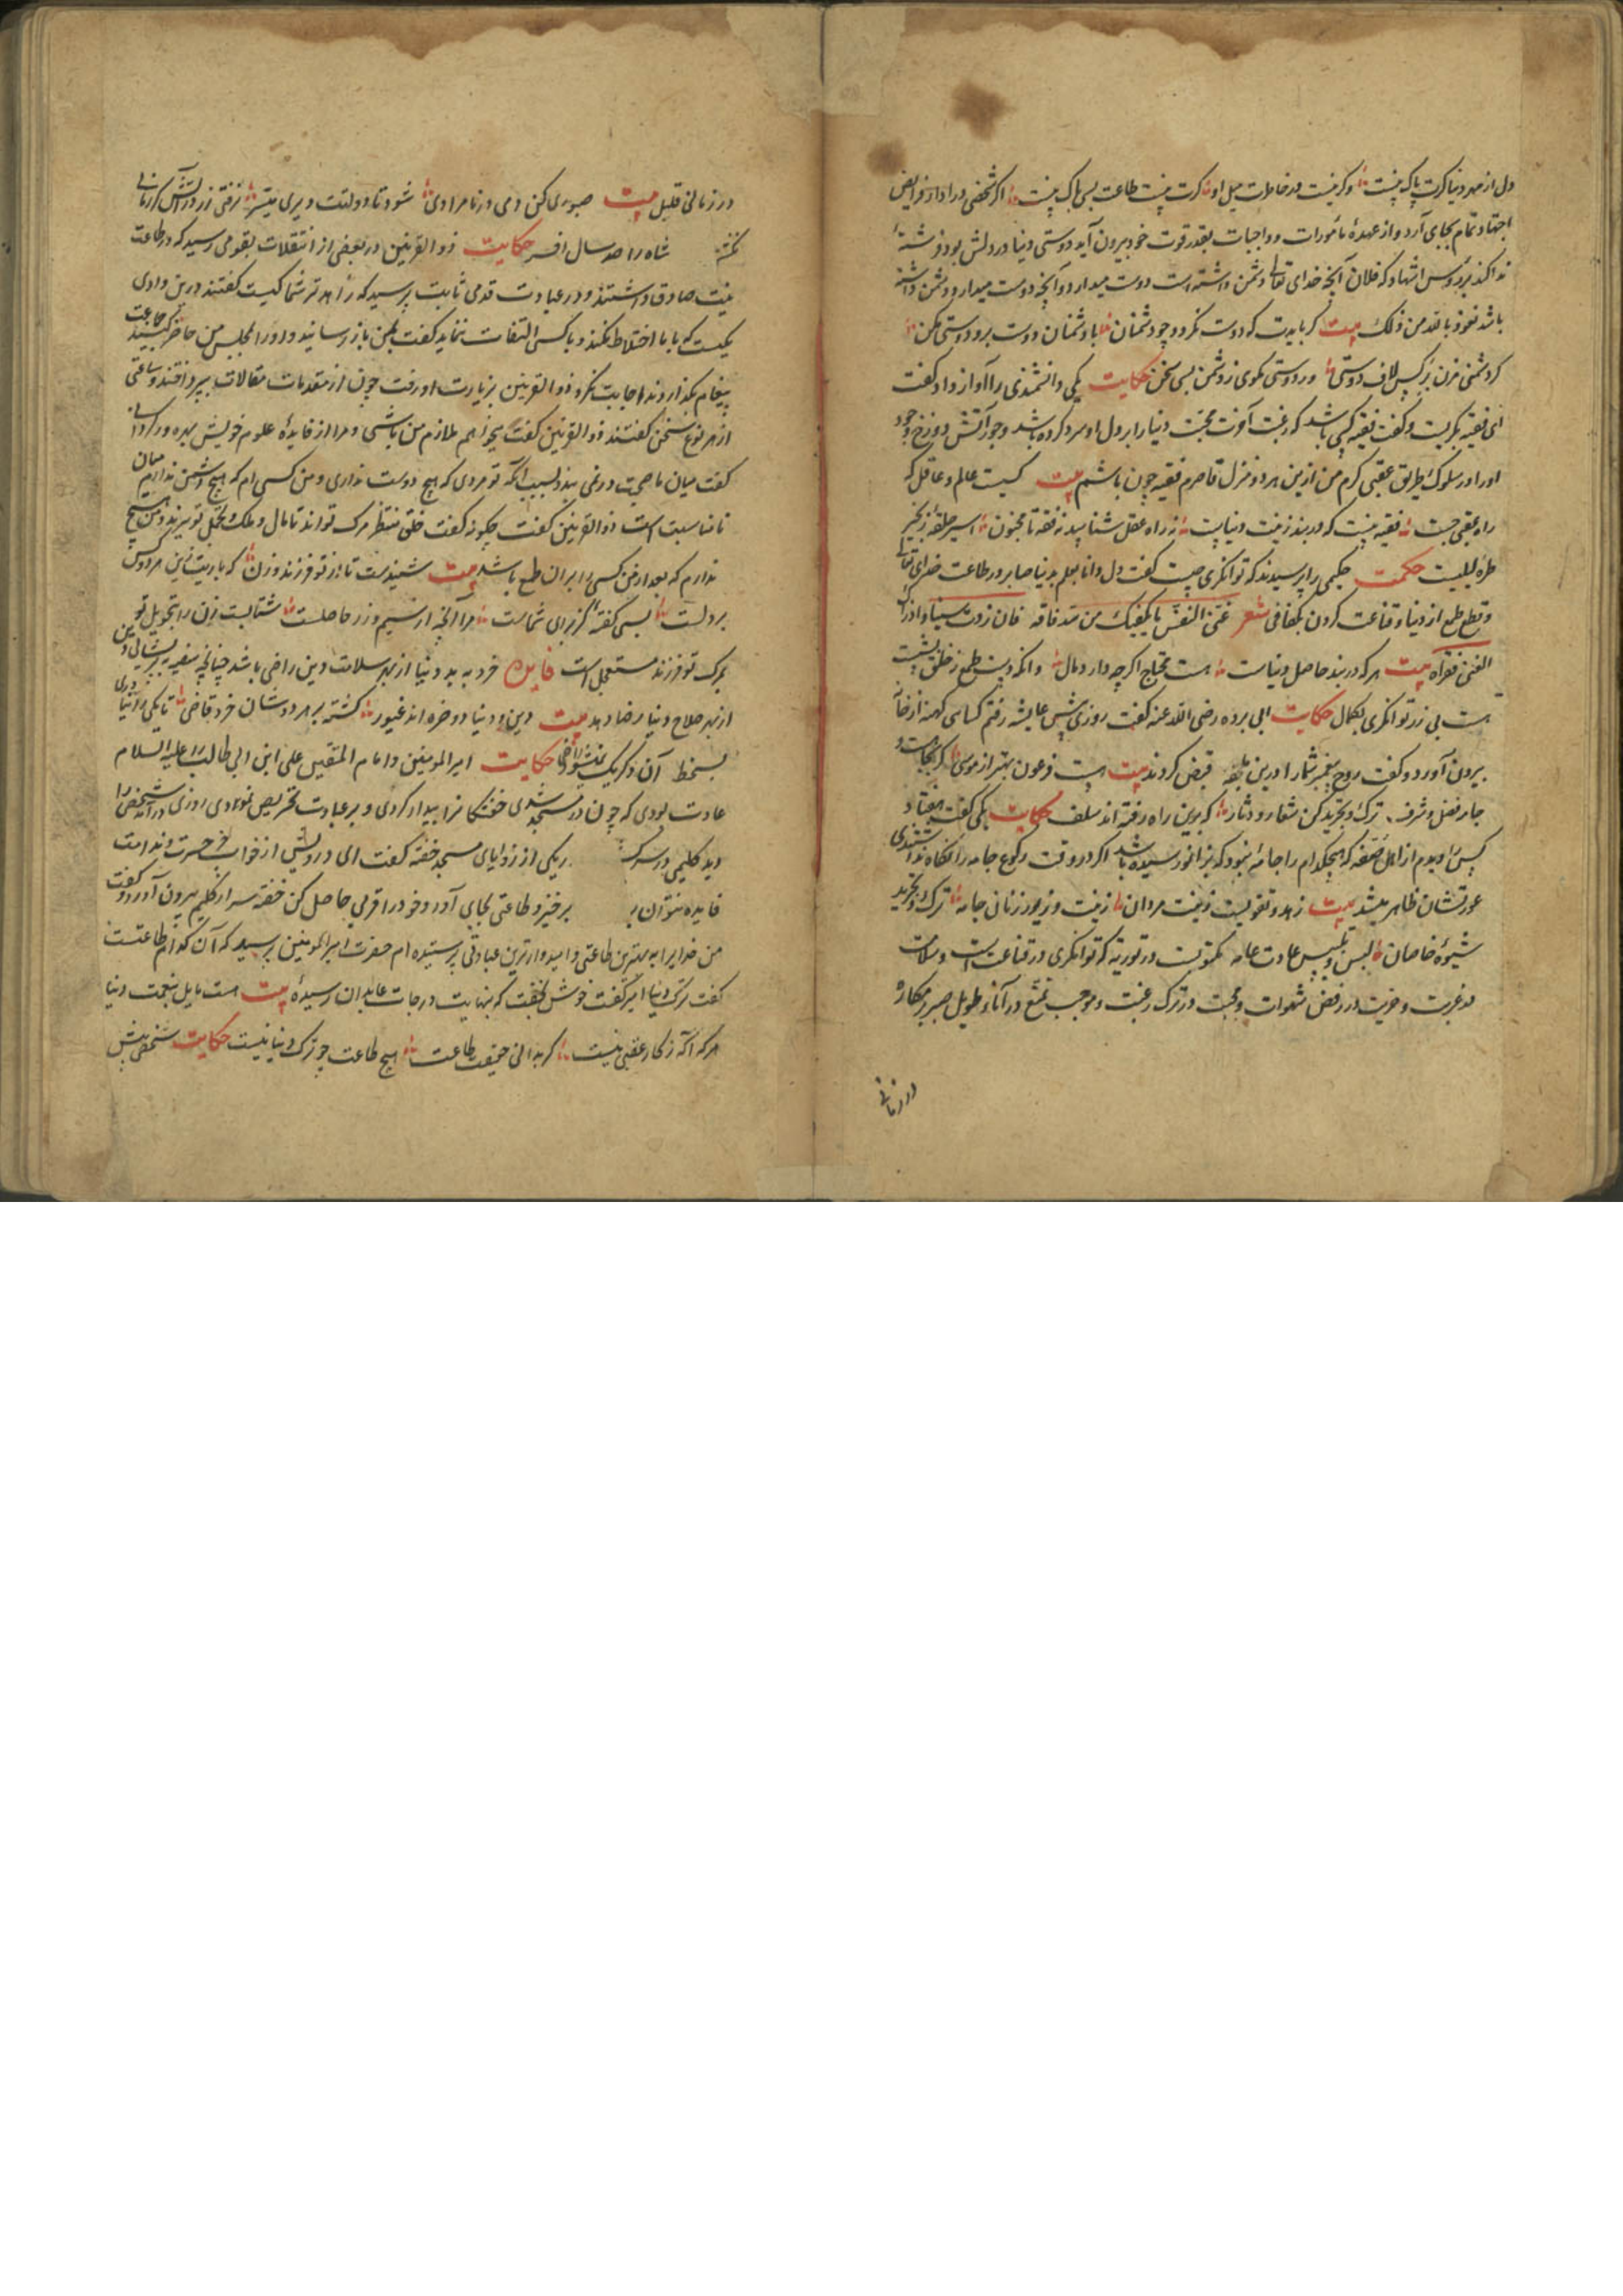 دل از مهر دنیا کرت پاک نیست وکر نیست در خاطرت میل او کرت نیست طاعت بسی باک نیست اکر شخصی در ادا فرایض
اجتهاد تمام بجای آرد و از عهدهٔ مأمورات و واجبات بقدر قوت خود بیرون آید و دوستی دنیا در دلش بود فرشتهٔ
ندا کند بر رؤس اشهاد که فلان آنچه خدای تعالی دشمن داشته است دوست میدارد و آنچه دوست میدارد دشمن داشته
باشد نعوذ بالله من ذلک بیت کر بایدت که دوست نکردد چو دشمنان با دشمنان دوست برو دوستی مکن
کر دشمنی مزن بر کس لاف دوستی ور دوستی مکوی ز دشمن بسی سخن حکایت یکی دانشمندی را آواز داد و کفت
ای فقیه بکریست و کفت فقیه کسی باشد که رغبت آخرت محبت دنیا را بر دل او سرد کرده باشد و خوف آتش دوزخ وجود
او را در سلوک طریق عقبی کرم من ازین هر دو منزل قاصرم فقیه چون باشم بیت کیست عالم و عاقل که
راه عقبی جست فقیه نیست که در بند زینت دنیاست ز راه عقل شناسد نه فقه تا مجنون اسیر حلقهٔ زنجیر
طرهٔ لیلیست حکمت حکیمی را پرسیدند که توانکری چیست کفت دل دانا بعلم بدنیا صابر در طاعت خدای تعالی
و قطع طمع از دنیا و قناعت کردن بکفافی شعر غنی النفس ما یکفیک من سد فاقه فان زدت شیئا عاد ذاک
الغنی فقرا بیت هر که در بند حاصل دنیاست هست محتاج اکرچه دارد مال وانکه دست طمع ز خلق ببست
هست بی زر توانکری بکمال حکایت ابی برده رضی الله عنه کفت روزی پیش عایشه رفتم کسای کهنه از خانه
بیرون آورد و کفت روح پیغمبر شما را درین قبض کردند بیت هست فرعون بهتر از موسی کر بجامست
جامه فضل و شرف ترک و تجرید کن شعار و دثار که برین راه رفته اند سلف حکایت یکی کفت هفتاد
کس را دیدم از اهل صفه که هیچکدام را جامهٔ نبود که بزانو رسیده باشد اکر در وقت رکوع جامه را نکاه نداشتندی
عورتشان ظاهر میشد بیت زهد و تقویست زینت مردان زینت و زیور زنانی جامه ترک و تجرید
شیوهٔ خاصان لبس و تلبیس عادت عامه مکتوبست در توریة که توانکری در قناعت است و سلامت
در غربت و حریت در رفض شهوات و محبت در ترک رغبت و موجب تمتع در آناء طویل صبر بر مکاره
در زمانی
در زمانی قلیل بیت صبوری کن دمی در نامرادی شود تا دولتت دیری میسر نرفتی زر در آتش کر زمانی
نکشتی شاه را صد سال افسر حکایت ذو القرنین در بعضی از انتقلات بقومی رسید که در طاعت
نیت صادق داشتند و در عبادت قدمی ثابت پرسید که زاهدتر شما کیست کفتند درین وادی
یکیست که با ما اختلاط نکند و با کسی التفات ننماید کفت بمن باز رسانید و او را بمجلس من حاضر کنید جماعت
پیغام بکذاردند اجابت نکرد ذو القرنین بزیارت او رفت چون از مقدمات مقالات بپرداختند و ساعتی
از هر نوع سخن کفتند ذو القرنین کفت میخواهم ملازم من باشی و مرا از فایدهٔ علوم خویش بهره ور کردانی
کفت میان ما صحبت در نمی بندد بسبب آنکه تو مردی که هیچ دوست نداری و من کسی ام که هیچ دشمن ندارم میان
ما مناسبت است ذو القرنین کفت چکونه کفت خلق منتظر مرک تو اند تا مال و ملک و تجمل تو ببرند و من هیچ
ندارم که بعد از من کسی را بر آن طمع باشد بیت شنیدست تا از تو فرزند و زن که باریست زین هر دو کس
بر دلت بسی کفته کز برای شماست مرا آنچه از سیم و زر حاصلست شتابست زن را بتحویل تو
بمرک تو فرزند مستعجل است فایده خرد به بد دنیا از بهر سلامت دین راضی باشد چنانچه سفیه به پریشانی دین
از بهر صلاح دنیا رضا دهد بیت دین و دنیا دو ضره اند غیور کشته بر هر دوشان خرد قاضی تا یکی را نیاوری
بسخط آن دکر یک نشود راضی حکایت امیر المومنین و امام المتقین علی ابن ابی طالب را علیه السلام
عادت بودی که چون در مسجد شدی خفتکانرا بیدار کردی و بر عبادت تحریص نمودی روزی درآمد شخصی را
دید کلیمی در سر کشیده در یکی از زوایای مسجد خفته کفت ای درویش از خواب جز حسرت و ندامت
فایده نتوان برد برخیز و طاعتی بجای آور و خود را قربی حاصل کن خفته سر از کلیم بیرون آورد و کفت
من خدایرا به بهترین طاعتی و امیدوارترین عبادتی پرستیده ام حضرت امیر المومنین پرسید که آن کدام طاعتست
کفت ترک دنیا امیر کفت خوش بخفت که بنهایت درجات عابدان رسیدهٔ بیت هست مایل بنعمت دنیا
هر که آکه ز کار عقبی نیست کر بدانی حقیقت طاعت هیچ طاعت چو ترک دنیا نیست حکایت شخصی پیش